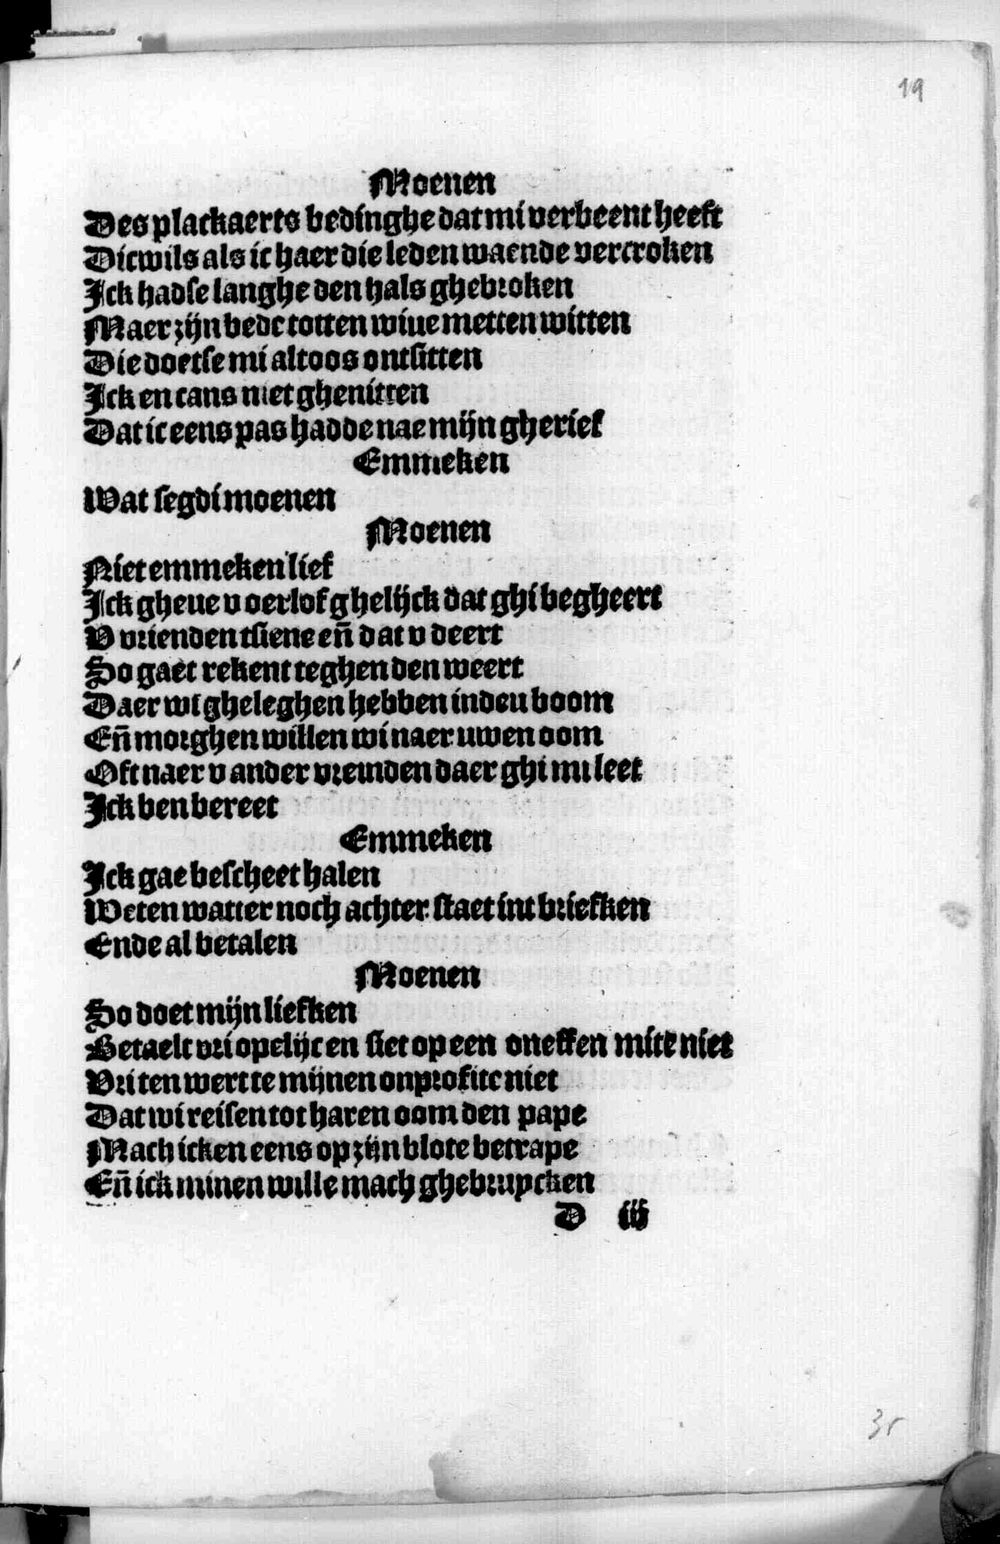 19
Moenen
Des plackaerts bedinghe dat mi verbeent heeft
Dicwils als ic haer die leden waende vercroken
Jck hadse langhe den hals ghebroken
Maer zijn bede totten wiue metten witten
Die doetse mi altoos ontsitten
Jck en cans niet ghenitten
Dat ic eens pas hadde nae mijn gherief
Emmeken
Wat segdi moenen
Moenen
Niet emmeken lief
Jck gheue v oerlof ghelijck dat ghi begheert
V vrienden tsiene eñ dat v deert
So gaet rekent teghen den weert
Daer wi gheleghen hebben in deu boom
Eñ morghen willen wi naer uwen oom
Oft naer v ander vreinden daer ghi mi leet
Jck ben bereet
Emmeken
Jck gae bescheet halen
Weten watter noch achter staet int briefken
Ende al betalen
Moenen
So doet mijn liefken
Betaelt vri opelijc en siet op een oneffen mite niet
Vri ten wert te mijnen onprofite niet
Dat wi reisen tot haren oom den pape
Mach icken eens op zijn blote betrape
Eñ ick minen wille mach ghebruycken
D iij
3r